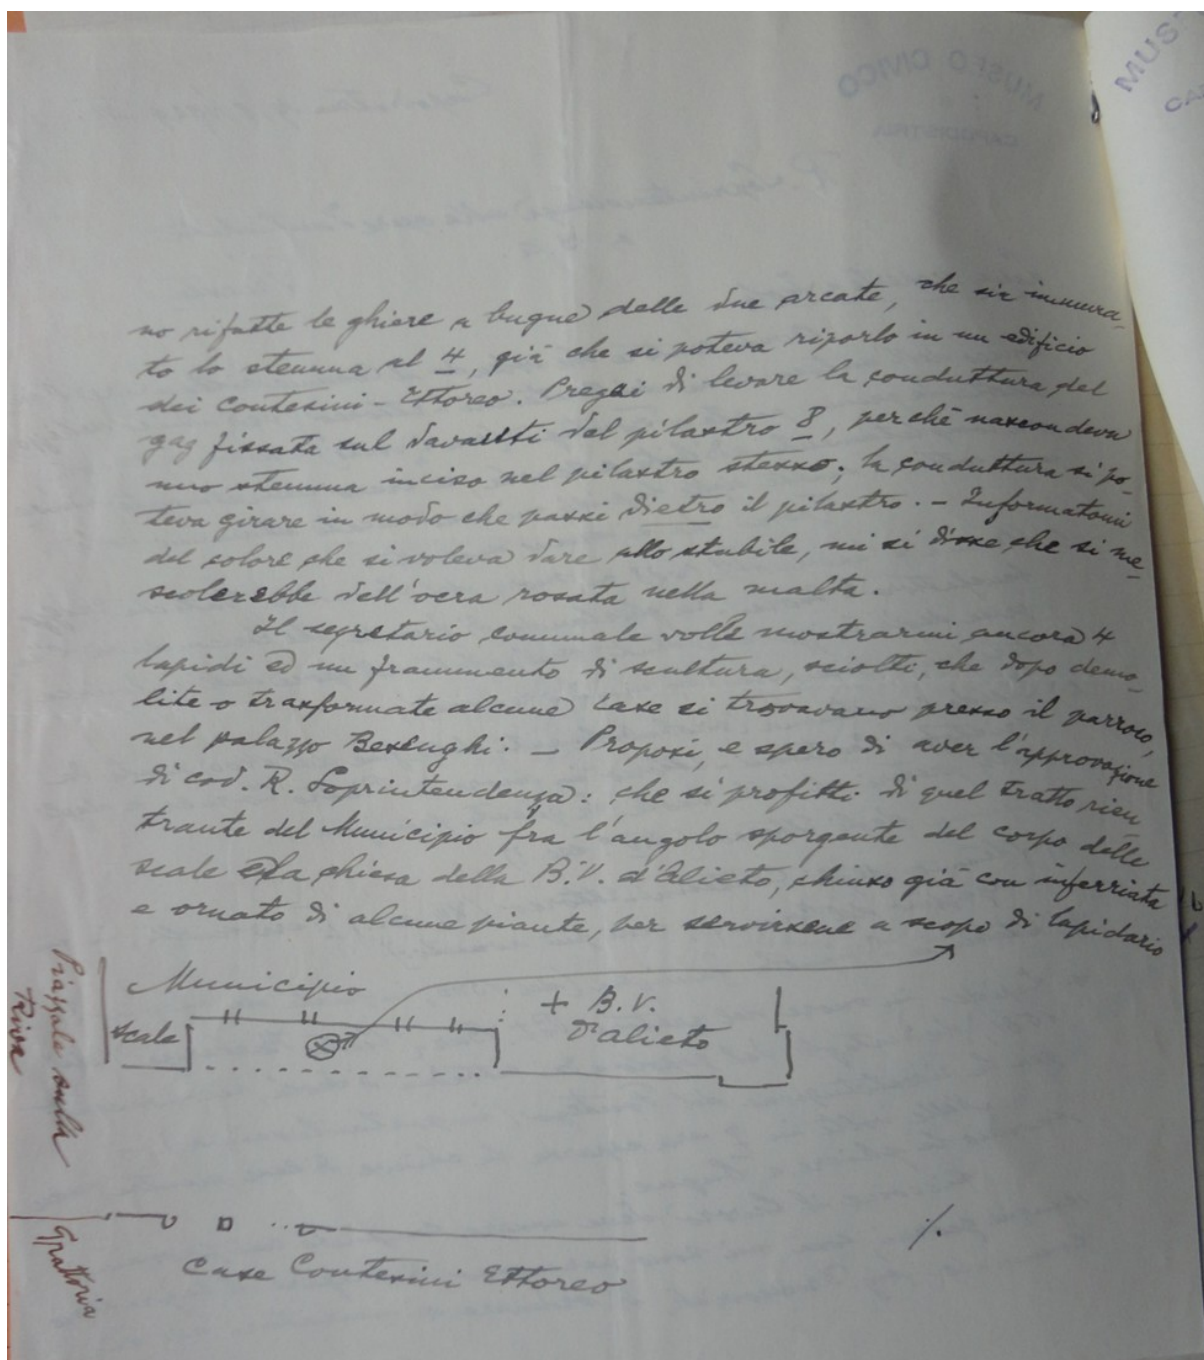 MUSEO CIVICO
CAPODISTRIA
no rifatte le ghiere a bugne delle due arcate, che sia immura-
to lo stemma al 4, già che si poteva riporlo in un edificio
dei Contesini - Ettoreo. Pregai di levare la conduttura del
gaz fissata sul davanti del pilastro 8, perchè nascondeva
uno stemma inciso nel pilastro stesso; la conduttura si po-
teva girare in modo che passi dietro il pilastro. - Informatomi
del colore che si voleva dare allo stabile, mi si disse che si me-
scolerebbe dell'ocra rosata nella malta.
Il segretario comunale volle mostrarmi ancora 4
lapidi ed un frammento di scultura, sciolti, che dopo demo-
lite o trasformate alcune case si trovavano presso il parroco,
nel palazzo Besenghi. - Proposi, e spero di aver l'approvazione
di cod. R. Soprintendenza: che si profitti di quel tratto rien
trante del Municipio fra l'angolo sporgente del corpo delle
scale e la chiesa della B.V. d'Alieto, chiuso già con inferriata
e ornato di alcune piante, per servirsene a scopo di lapidario
Municipio
scale
+ B.V.
d'Alieto
Piazzale sulla
Riva
Case Contesini Ettoreo
./.